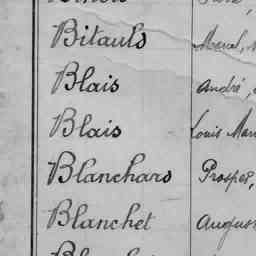 Bitauls Marcel,
Blais André,
Blais Louis Mar
Blanchars Prosper,
Blanchet Augus